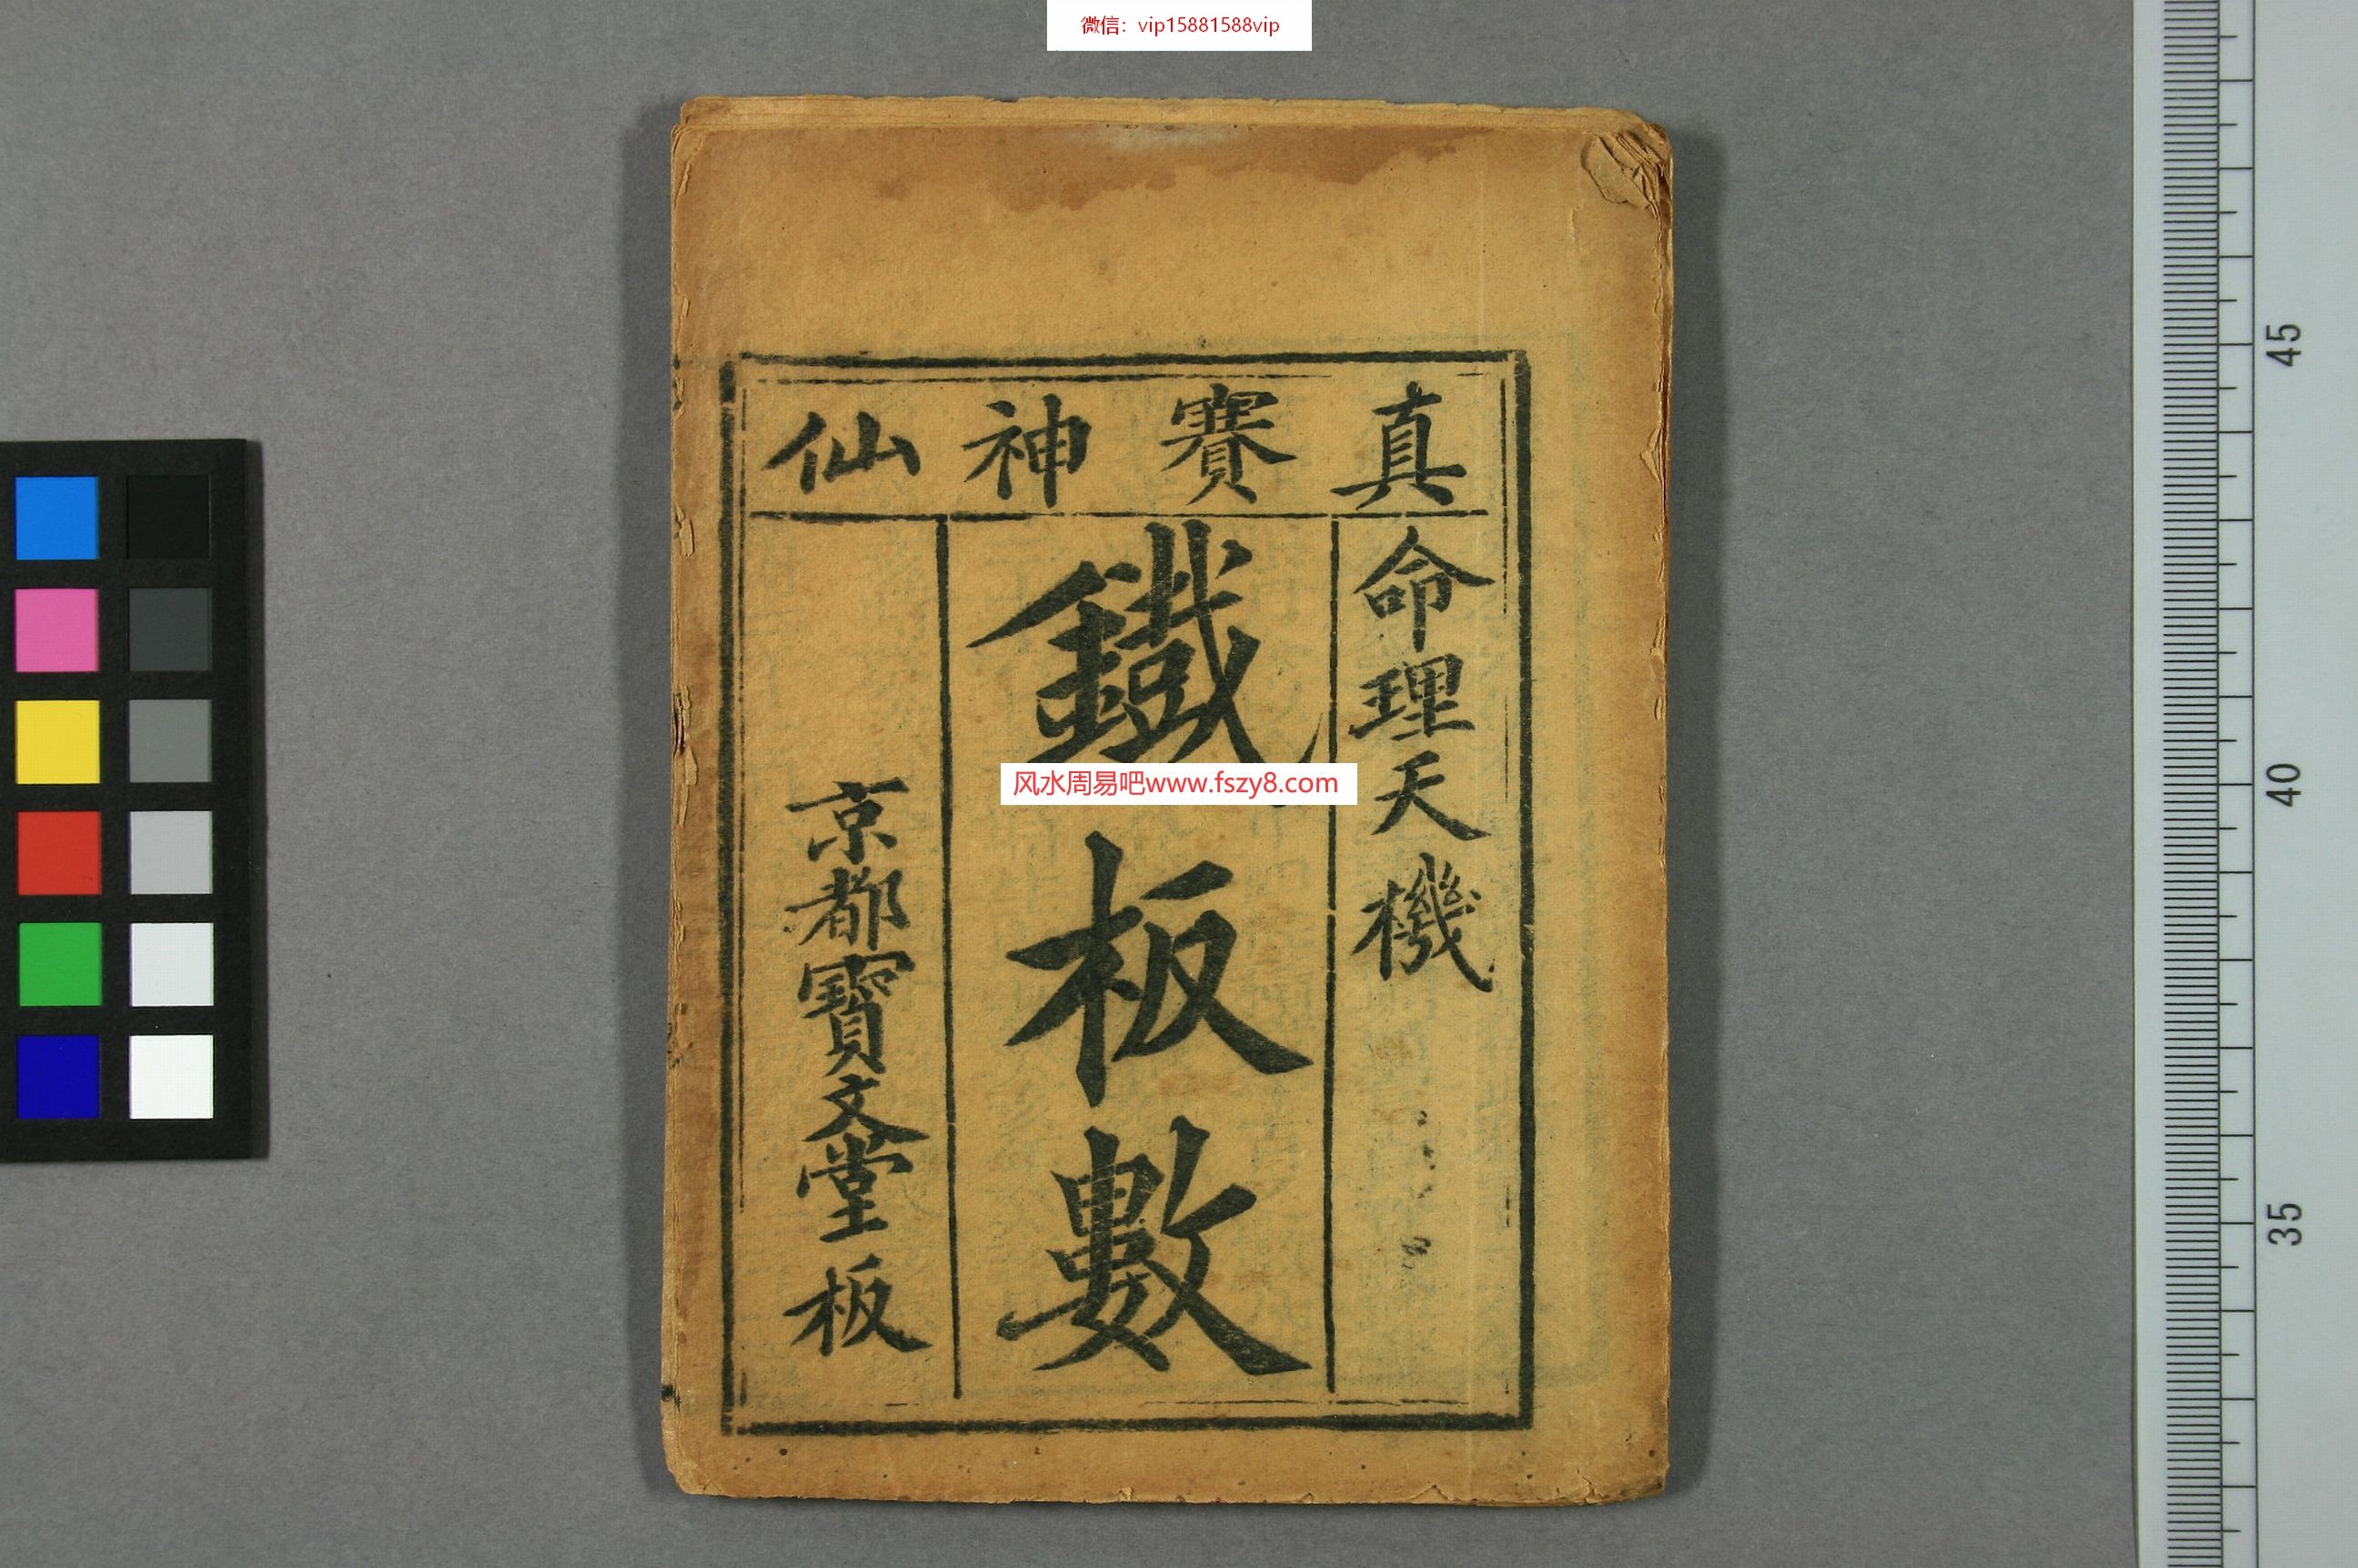 微信：vip15881588vip
真賽神仙
命理天機
鐵板數
风水周易吧www.fszy8.com
京都寶文堂板
45
40
35